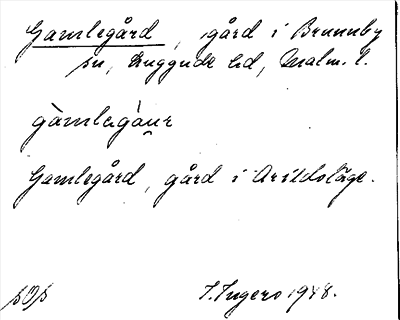 Gamlegård, gård i Brunnby
sn, Luggude hd, Malm. l.
gàmlegáur
Gamlegård, gård i Arildsläge.
T. Ingers 1948.